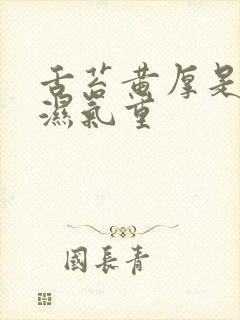 舌苔黄厚是
濕氣重
國長青